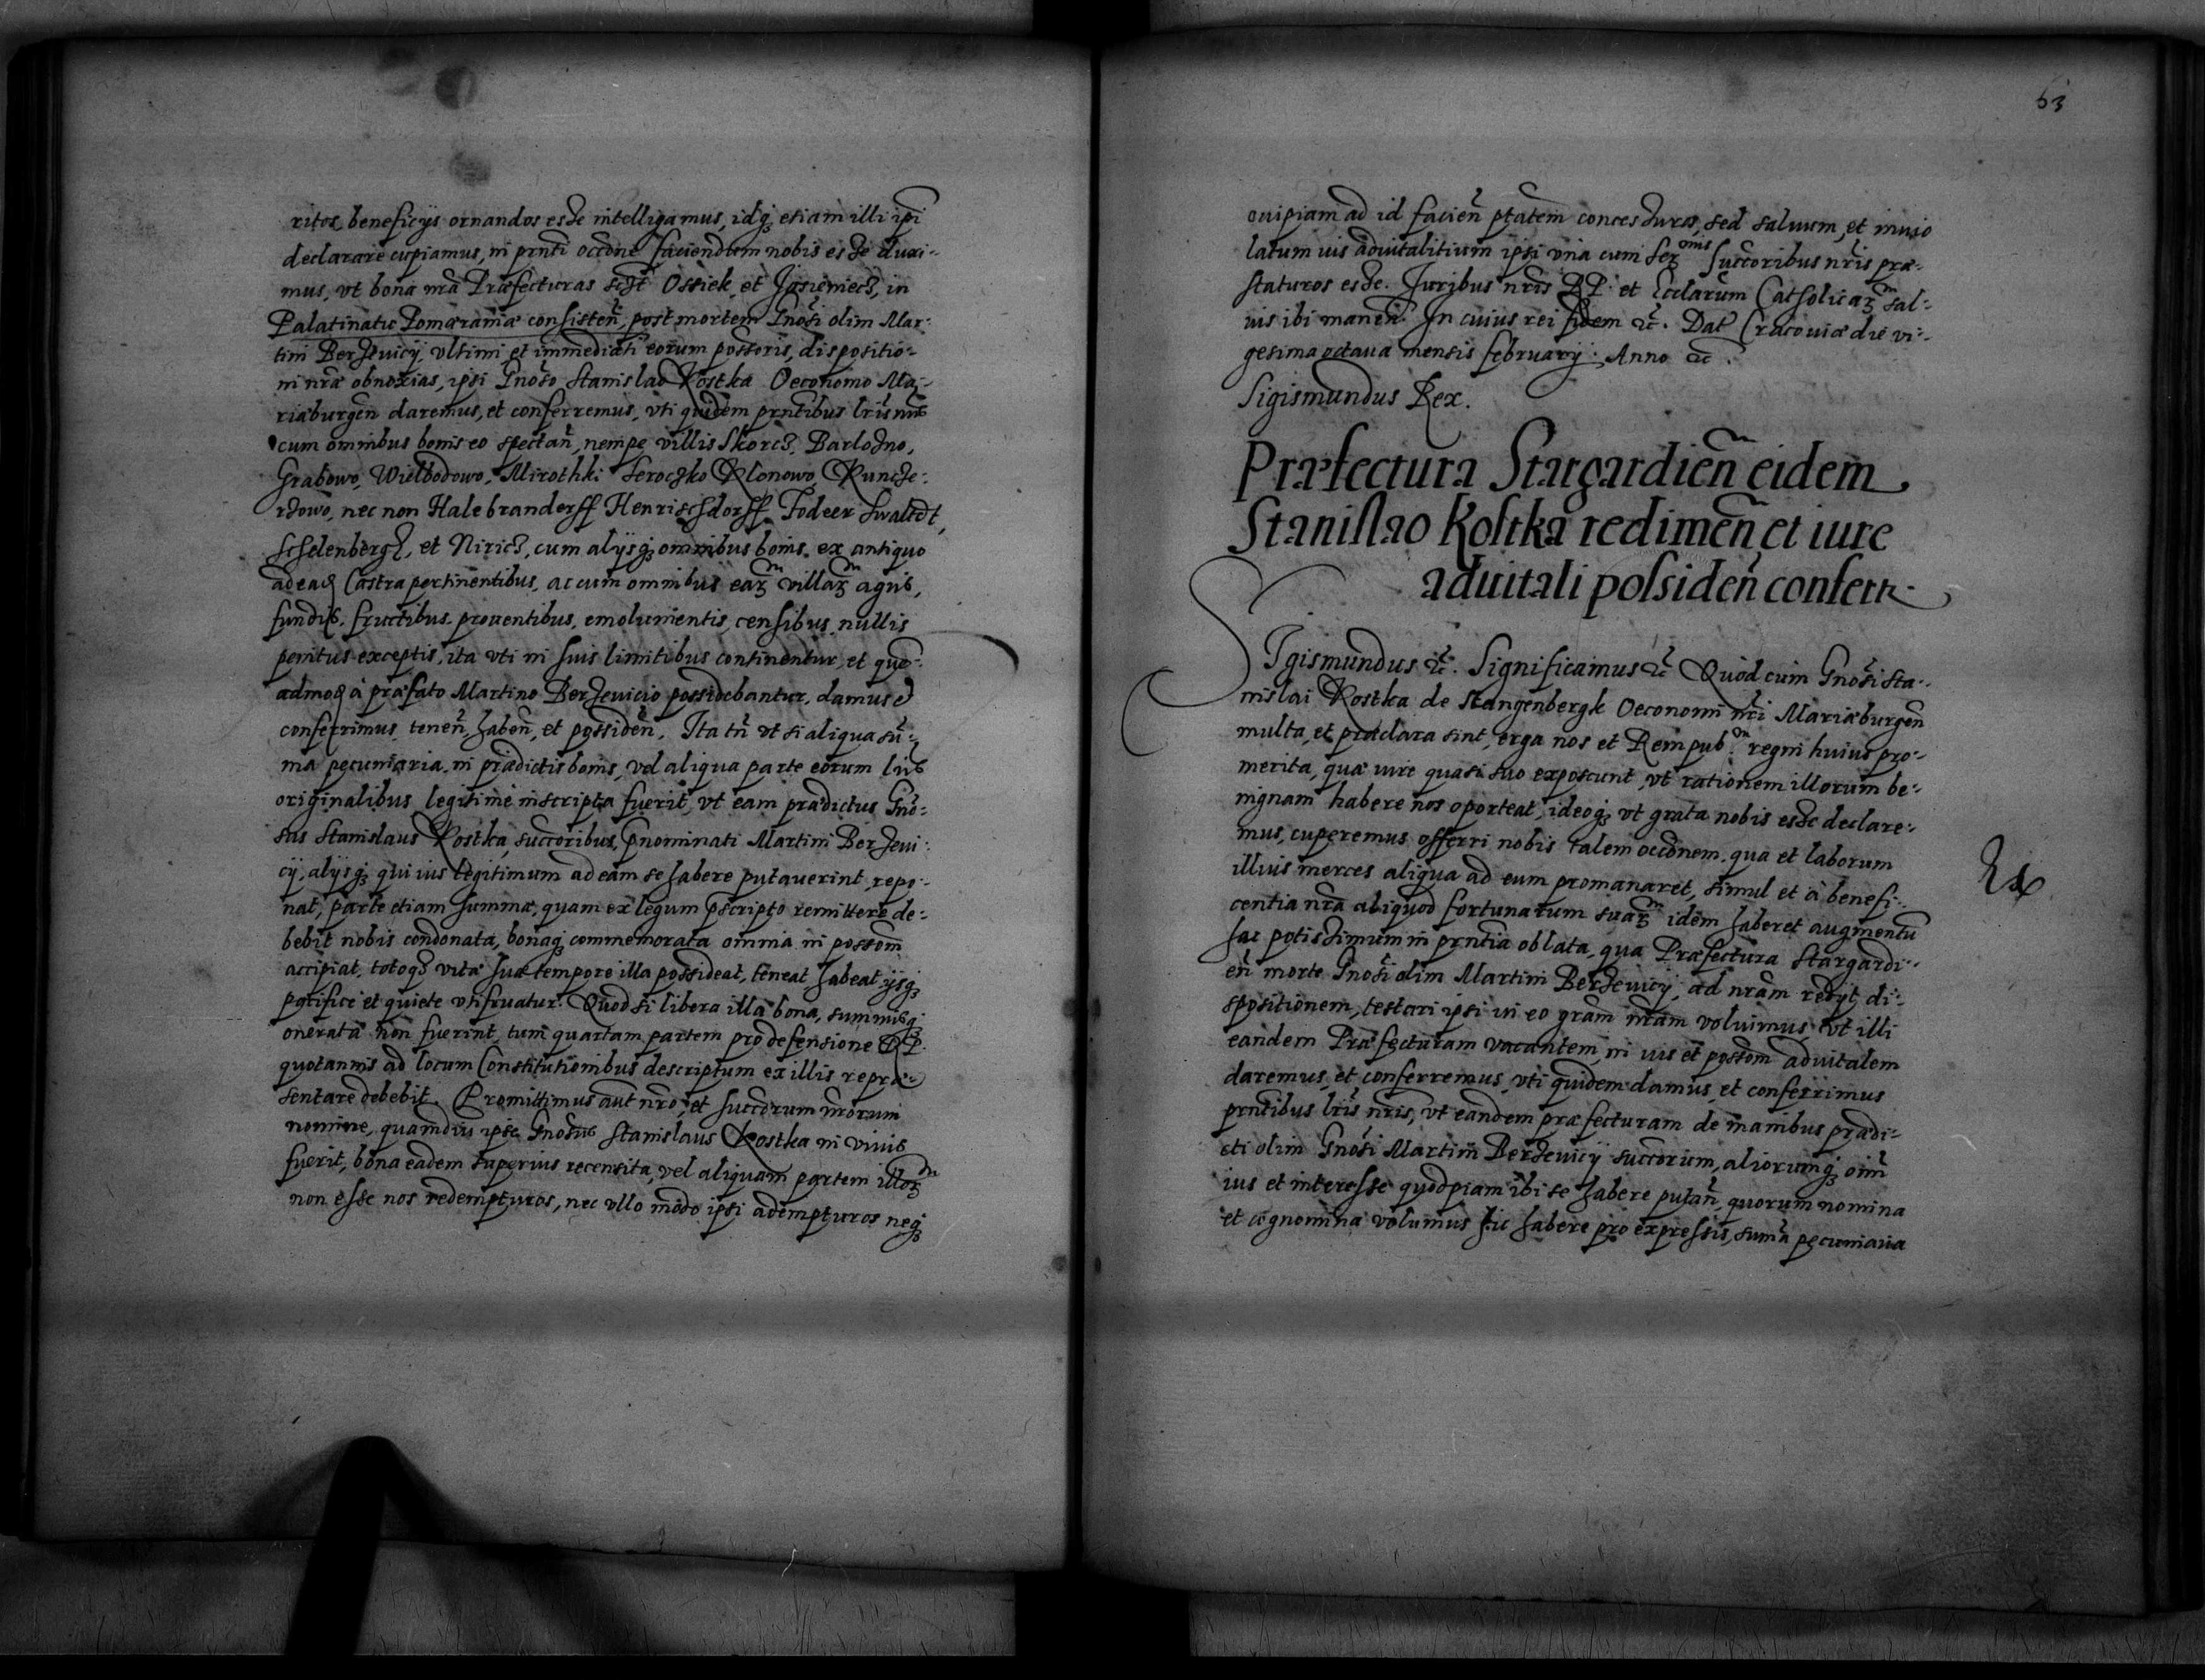 ritos beneficijs ornandos esse intelligamus, idq; etiam illi ipi
declarare cupiamus, in prnti occone faciendum nobis esse duxi-
mus, vt bona nra Præfecturas sclt Ossiek, et Jasieniecz, in
Palatinatu Pomeraniæ consisten, post mortem Gnosi olim Mar-
tini Berzeuicij, vltimi et immediati eorum possoris, dispositio-
ni nræ obnoxias, ipsi Gnoso Stanislao Kostka Oeconomo Ma-
riæburgen daremus, et conferremus, vti quidem prntibus lris nris
cum omnibus bonis eo spectan, nempe villis Skorcz, Barlozno,
Grabowo, Wielbodowo, Mirothki Seroczko Klonowo, Runcze-
rzowo, nec non Halebranderff Henrischdorff Fodeer Swaltdt,
Schelenbergk, et Niricz, cum alijsq; omnibus bonis ex antiquo
ad ead Castra pertinentibus, ac cum omnibus earz villarz agris,
fundis, fructibus prouentibus, emolumentis, censibus nullis
penitus exceptis, ita vti in suis limitibus continentur, et que-
admod à præfato Martino Berzeuicio possidebantur, damus et
conferrimus, tenen, haben, et possiden. Ita tn vt si aliqua su-
ma pecuniaria, in prædictis bonis, vel aliqua parte eorum lris
originalibus legitime inscripta fuerit, vt eam prædictus Gno-
sus Stanislaus Kostka, succoribus, pnominati Martini Berzeui-
cij, alijsq; qui ius legitimum ad eam se habere putauerint, repo-
nat, parte etiam summæ, quam ex legum pscripto remittere de-
bebit nobis condonata, bonaq; commemorata omnia in possom
accipiat, totoq; vitæ suæ tempore illa possideat, teneat, habeat, ijsq;
pacifice et quiete vtifruatur. Quod si libera illa bona, summisq;
onerata non fuerint, tum quartam partem pro defensione RP.
quotannis ad locum Constitutionibus descriptum ex illis repræ-
sentare debebit. Promittimus aut nro, et succorum nrorum
nomine, quamdiu ipse Gnosus Stanislaus Kostka in viuis
fuerit, bona eadem superius recensita, vel aliquam partem illorz
non esse nos redempturos, nec vllo modo ipsi adempturos neq;
63
cuipiam ad id facien ptatem concessuros, sed saluum, et inuio
latum ius aduitalitium ipsi vna cum Serz mis Succoribus nris præ-
staturos esse. Juribus nris RP. et Ecclarum Catholicarz sal-
uis ibi manen. In cuius rei fidem etc. Dat Cracouiæ die vi-
gesima octaua mensis february. Anno etc.
Sigismundus Rex.
Præfectura Stargardien eidem
Stanislao Kostka redimen et iure
aduitali possiden confertr.
Sigismundus etc. Significamus etc Quod cum Gnosi Sta-
nislai Kostka de Stangenbergk Oeconomi nri Mariæburgen
multa, et præclara sint, erga nos et Rempub. regni huius pro-
merita, quæ iure quasi suo exposcunt, vt rationem illorum be-
nignam habere nos oporteat, ideoq; vt grata nobis esse declare-
mus, cuperemus offerri nobis talem occonem, qua et laborum
illius merces aliqua ad eum promanaret, simul et à benefi-
centia nra aliquod fortunarum suarz idem haberet augmentu
hac potissimum in prntia oblata, qua Præfectura Stargardi-
en morte Gnosi olim Martini Berzeuicij, ad nram redijt di-
spositionem, testari ipsi in eo gram nram voluimus, vt illi
eandem Præfecturam vacantem, in ius et possom aduitalem
daremus, et conferremus, vti quidem damus, et conferrimus
prntibus lris nris, vt eandem præfecturam de manibus prædi-
cti olim Gnosi Martini Berzeuicij succorum, aliorumq; oim
ius et interesse quodpiam ibi se habere putan, quorum nomina
et cognomina volumus hic habere pro expressis, suma pecuniaria